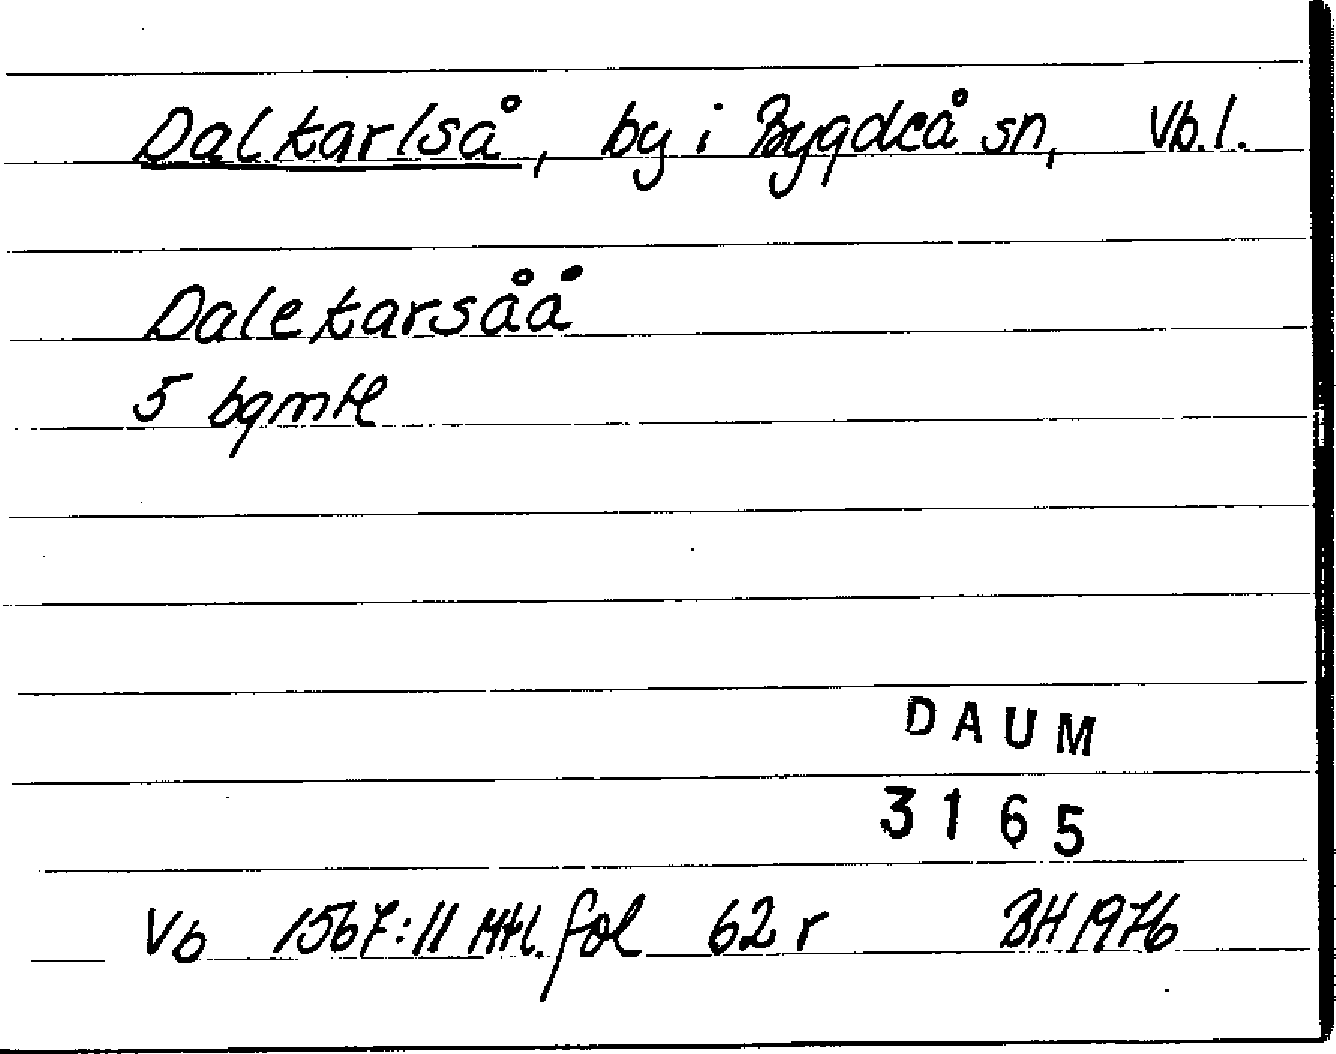 Dalkarlså, by i Bygdeå sn, Vb.l.
Dalekarsåå
5 bgmtl
DAUM
3165
Vb 1567:11 Mtl. fol 62 r BH 1976